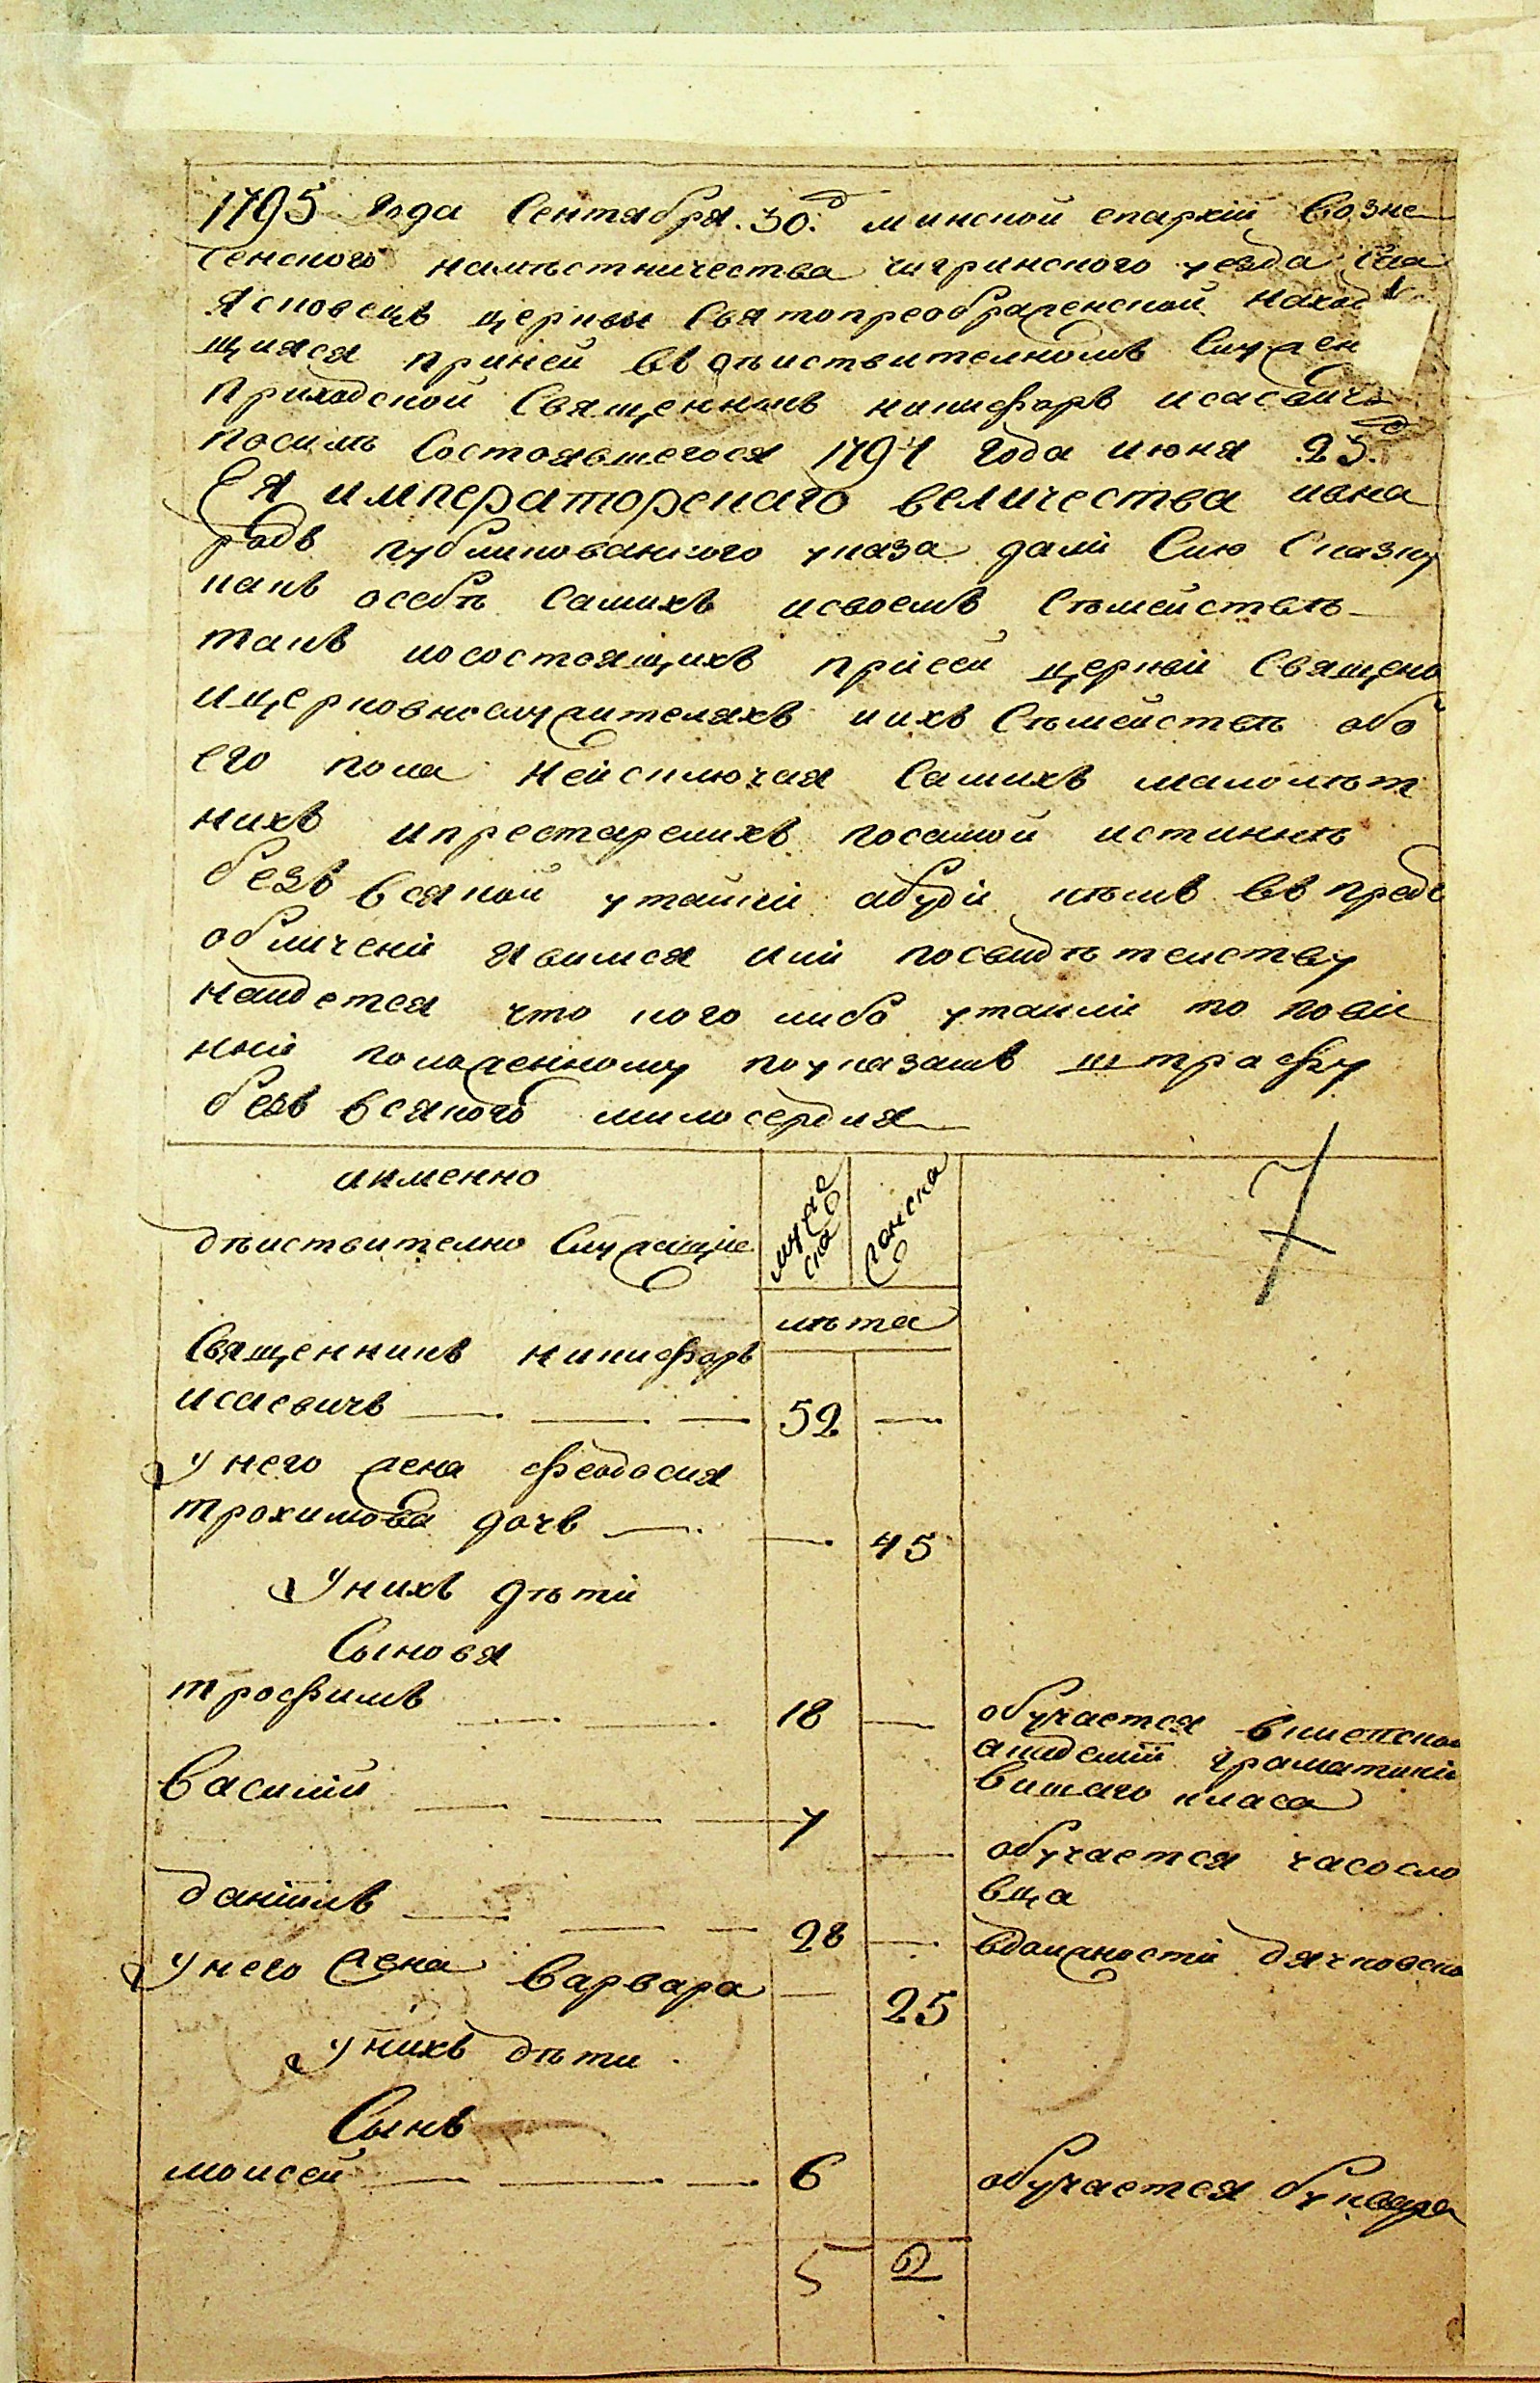 1795 года Сентября 30: д минской епархій Возне
сенского наместничества чигринского уезда Села
Ясновецъ церквы Святопреображенской находя
щияся приней въ дѣиствителномъ Служен
приходской Священникъ никифоръ исаевичъ
посилѣ Состоявшегося 1794 года июня 23: д
Ея императорскаго величества ивна
родъ публикованного указа дали Сию Сказку
какъ осебѣ Самихъ исвоемъ Сѣмействѣ
такъ иосостоящихъ присей церкви Священо
ицерковнослужителяхъ иихъ Сѣмействѣ обо
его пола неисключая Самихъ малолѣт
нихъ ипрестарелихъ посамой истиннѣ
безъ всякой утайки абуди кѣмъ въ предь
обличени явимся или посвидѣтелству
найдется что кого либо утаили то пови
нни положенному поуказамъ штрафу
безъ всякого милосердия
имменно
дѣиствително Служащіе
мужеска
женска
лѣта
7
Священникъ никифоръ
исаевичъ 52
у него жена феодосия
трохимова дочъ 45
у нихъ дѣти
Сыновя
трофимъ 18 обучается вкиевской
акидемии граматики
вишаго класа
Василий 7 обучается часосло
вца
даниилъ 28 вдолжности дячковско
у него жена Варвара 25
у нихъ дѣти
Сынъ
моисей 6 обучается букваря
5 2